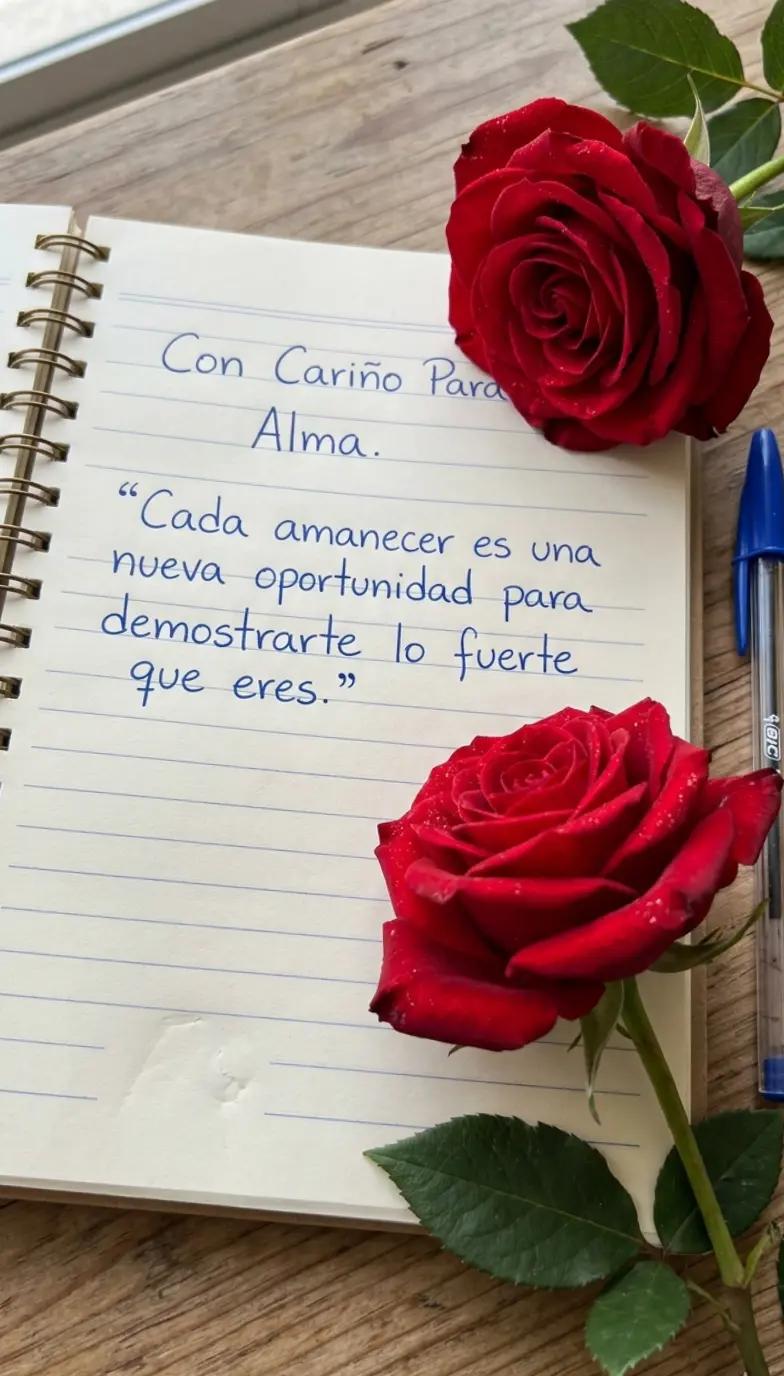 Con Cariño Para
Alma.
“Cada amanecer es una
nueva oportunidad para
demostrarte lo fuerte
que eres.”
BIC